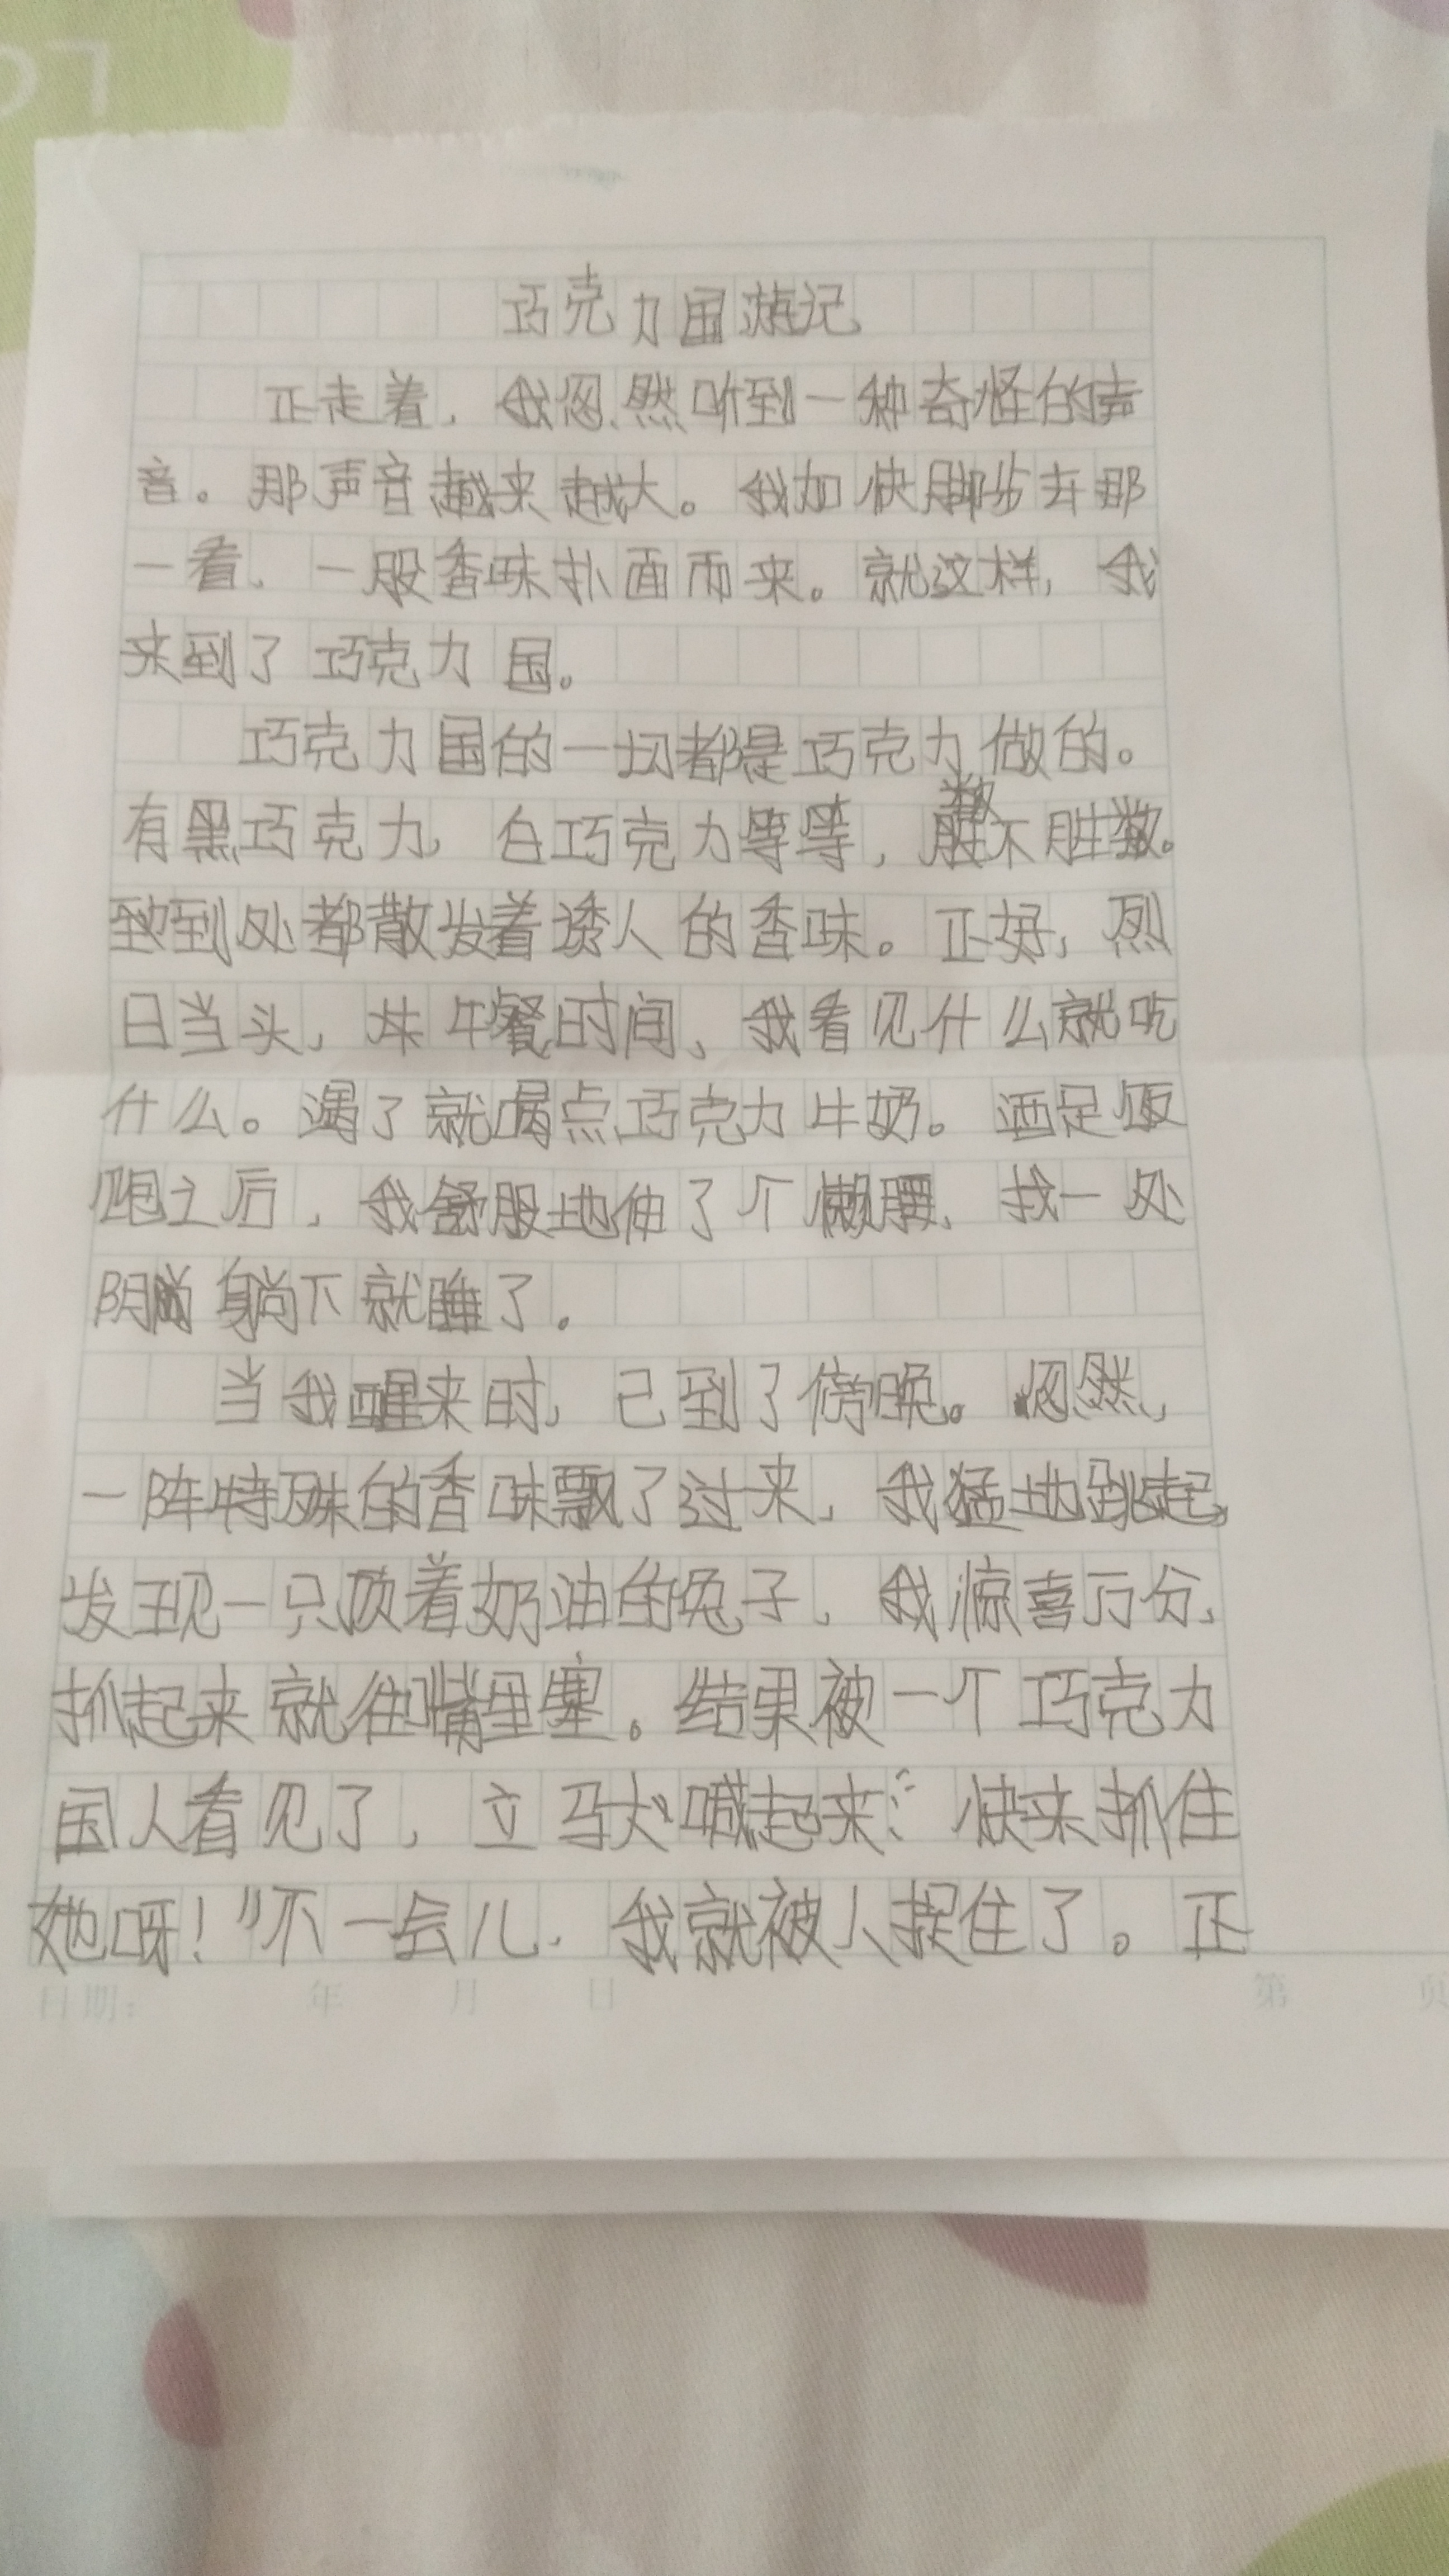 巧克力国游记
正走着，我忽然听到一种奇怪的声
音。那声音越来越大。我加快脚步去那
一看，一股香味扑面而来。就这样，我
来到了巧克力国。
巧克力国的一切都是巧克力做的。
有黑巧克力，白巧克力等等，数不胜数。
到处都散发着诱人的香味。正好，烈
日当头，午餐时间，我看见什么就吃
什么。渴了就喝点巧克力牛奶。酒足饭
饱之后，我舒服地伸了个懒腰，找一处
阴凉躺下就睡了。
当我醒来时，已到了傍晚。忽然，
一阵特殊的香味飘了过来，我猛地跳起，
发现一只顶着奶油的兔子，我惊喜万分，
抓起来就往嘴里塞。结果被一个巧克力
国人看见了，立马大喊起来：“快来抓住
她呀！”不一会儿，我就被人捉住了。正
日期： 年 月 日 第 页